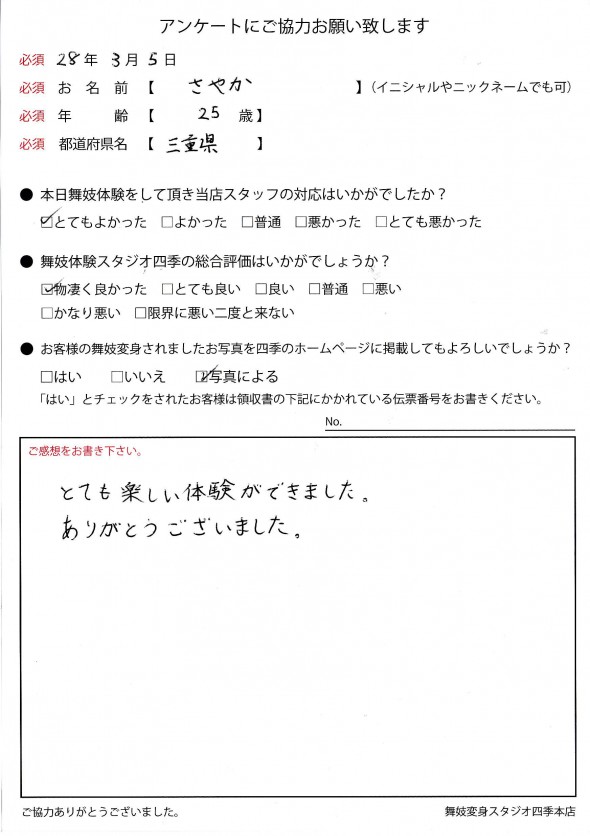 アンケートにご協力お願い致します
必須 28年 3月 5日
必須 お名前【 さやか 】（イニシャルやニックネームでも可）
必須 年齢【 25 歳】
必須 都道府県名【 三重県 】
● 本日舞妓体験をして頂き当店スタッフの対応はいかがでしたか？
☑とてもよかった □よかった □普通 □悪かった □とても悪かった
● 舞妓体験スタジオ四季の総合評価はいかがでしょうか？
☑物凄く良かった □とても良い □良い □普通 □悪い
□かなり悪い □限界に悪い二度と来ない
● お客様の舞妓変身されましたお写真を四季のホームページに掲載してもよろしいでしょうか？
□はい □いいえ ☑写真による
「はい」とチェックをされたお客様は領収書の下記にかかれている伝票番号をお書きください。
No.
ご感想をお書き下さい。
とても楽しい体験ができました。
ありがとうございました。
ご協力ありがとうございました。 舞妓変身スタジオ四季本店